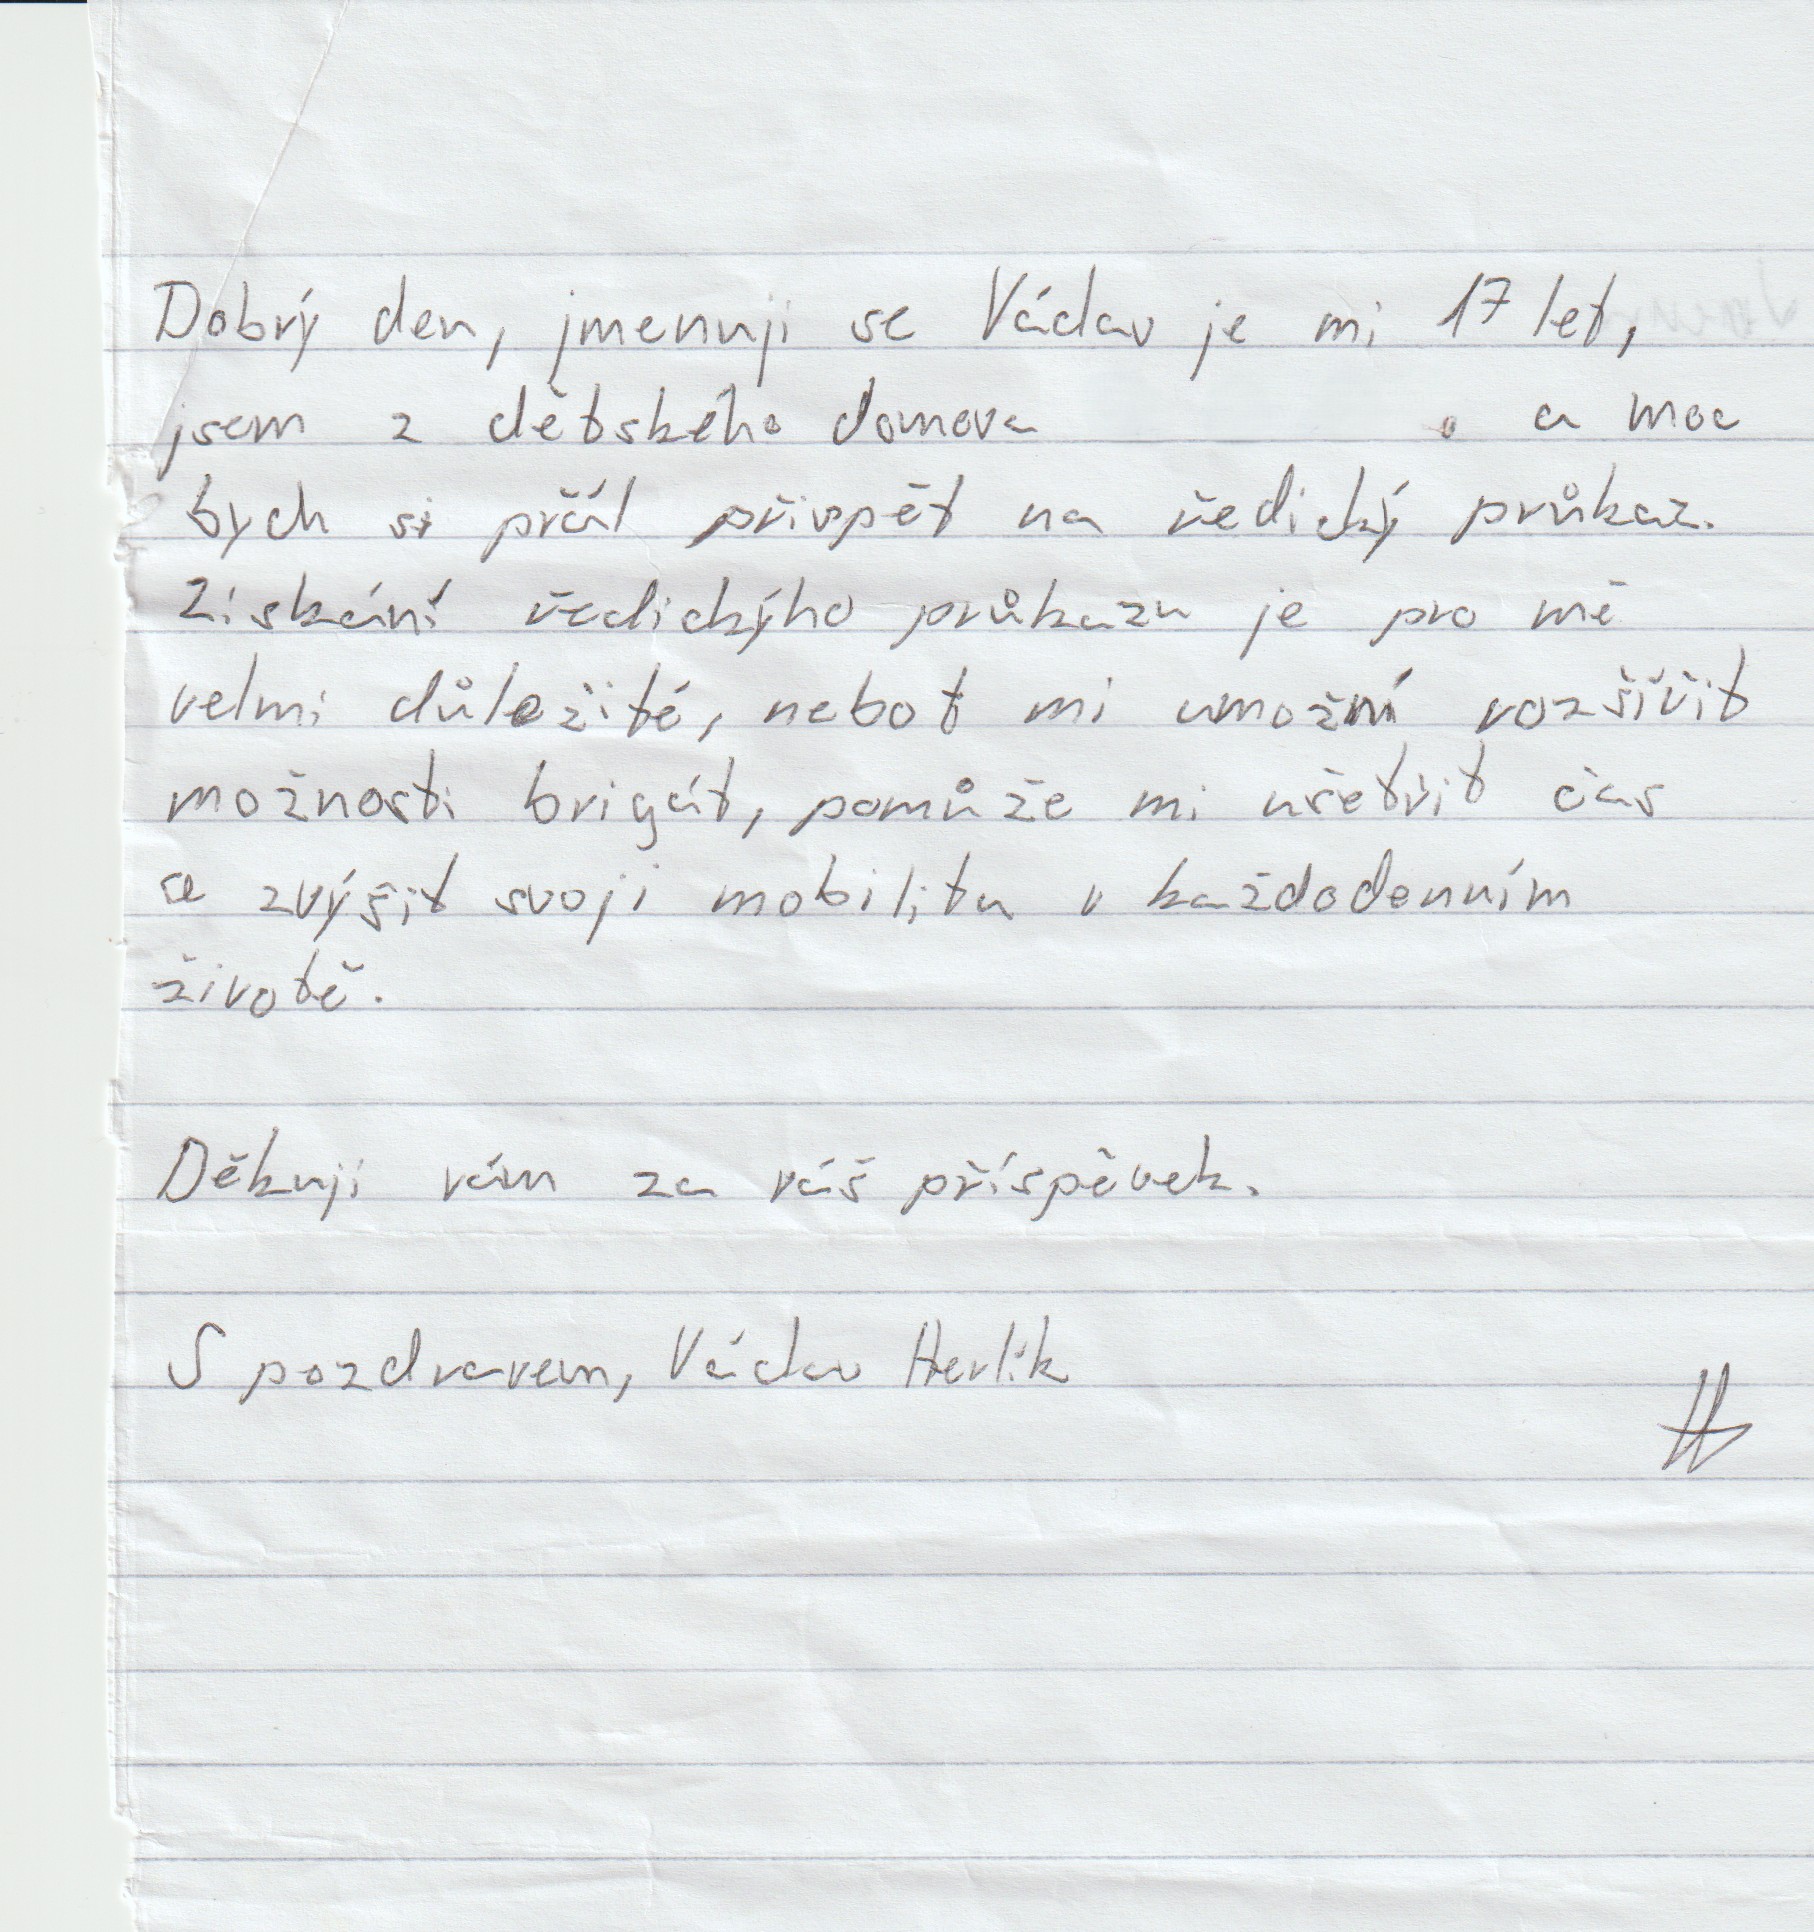 Dobrý den, jmenuji se Václav je mi 17 let,
jsem z dětského domova a moc
bych si přál přispět na ředický průkaz.
Získání ředickýho průkazu je pro mě
velmi důležité, nebot mi umožní rozšířit
možnosti brigát, pomůže mi ušetřit čas
se zvýšit svoji mobilitu v každodenním
životě.
Děkuji vám za váš příspěvek.
S pozdravem, Václav Herlík